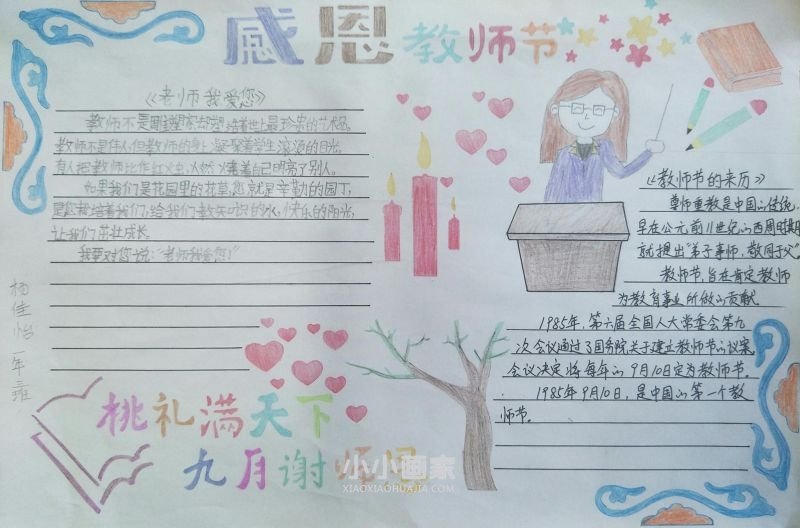 感恩教师节
《老师我爱您》
教师不是雕塑家，却塑培着世上最珍贵的艺术品。
教师不是伟人，但教师的身上凝聚着学生滚烫的目光。
有人把教师比作红火虫，燃烧着自己明亮了别人。
如果我们是花园里的花草，您就是辛勤的园丁，
是您栽培着我们，给我们教知识的水，快乐的阳光，
让我们茁壮成长。
我要对您说："老师我爱您！"
杨佳怡 一年
《教师节的来历》
尊师重教是中国的传统，
早在公元前11世纪的西周时期
就提出"弟子事师，敬同于父"
教师节，旨在肯定教师
为教育事业所做的贡献
1985年，第六届全国人大常委会第九
次会议通过了国务院关于建立教师节的议案
会议决定将每年的9月10日定为教师节。
1985年9月10日，是中国的第一个教
师节。
桃礼满天下
九月谢师恩
小小画家
XIAOXIAOHUAJIA.COM